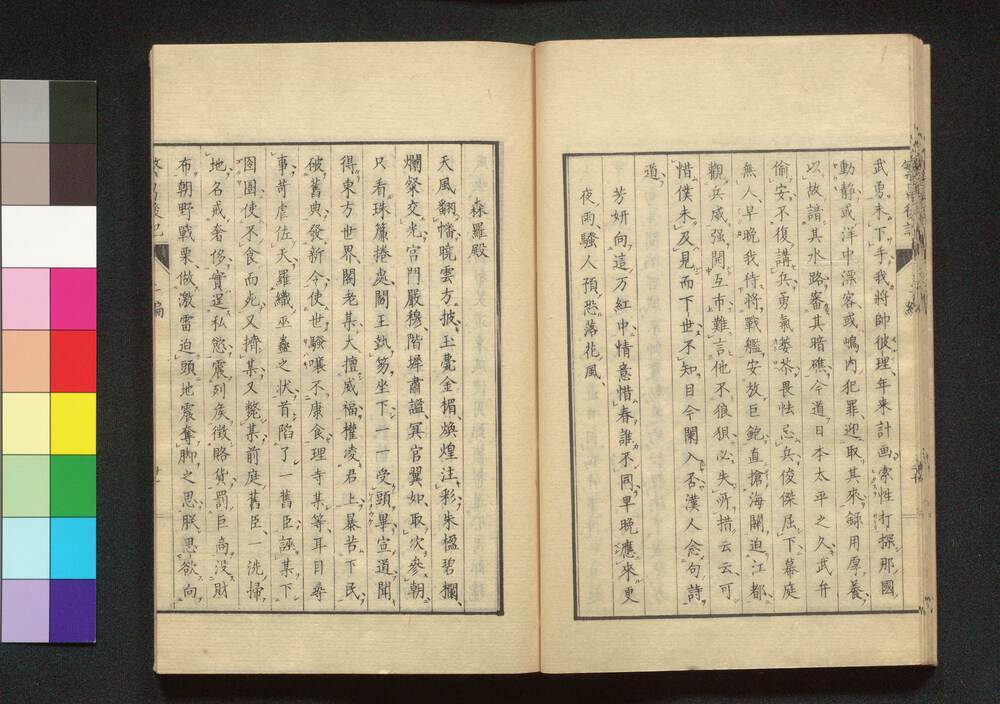 武勇未下手我將帥彼理年来計画索性打探那國
動靜或洋中漂客或嶋内犯罪迎取其來録用厚養
以故諳其水路審其暗礁今道日本太平之久武弁
偷安不復講兵勇氣萎苶畏怯忌兵俊傑屈下幕庭
無人早晩我待將戰艦安放巨鮑直搶海關迫江都
觀兵威强開互市難言他不狼狽必失所措云云可
惜僕未及見而下世不知目今闌入否漢人念句詩
道
芳妍向這万紅中情意惜春誰不同早晩應來更
夜雨騷人預恐落花風
森羅殿
天風翻幡曉雲方披玉甍金楣煥煌注彩朱楹碧欄
爛粲交光宮門嚴穆階墀肅謐冥官翼如取次參朝
只看珠簾捲處閻王執笏坐下一一受頭畢宣道聞
得東方世界閣老某大擅威福權凌君上暴苦下民
破舊典發新令使世騷嚷不康食理寺某等耳目尋
事苛虐佐天羅織巫蠱之状首陷了一舊臣誣某下
囹圄使不食而死又擠某又斃某前庭舊臣一洗掃
地名戒奢侈實逞私慾震列矦徴賂貨罰巨商没財
布朝野戰栗做激雷迫頭地震奪脚之思朕思欲向
繁昌後記 二編